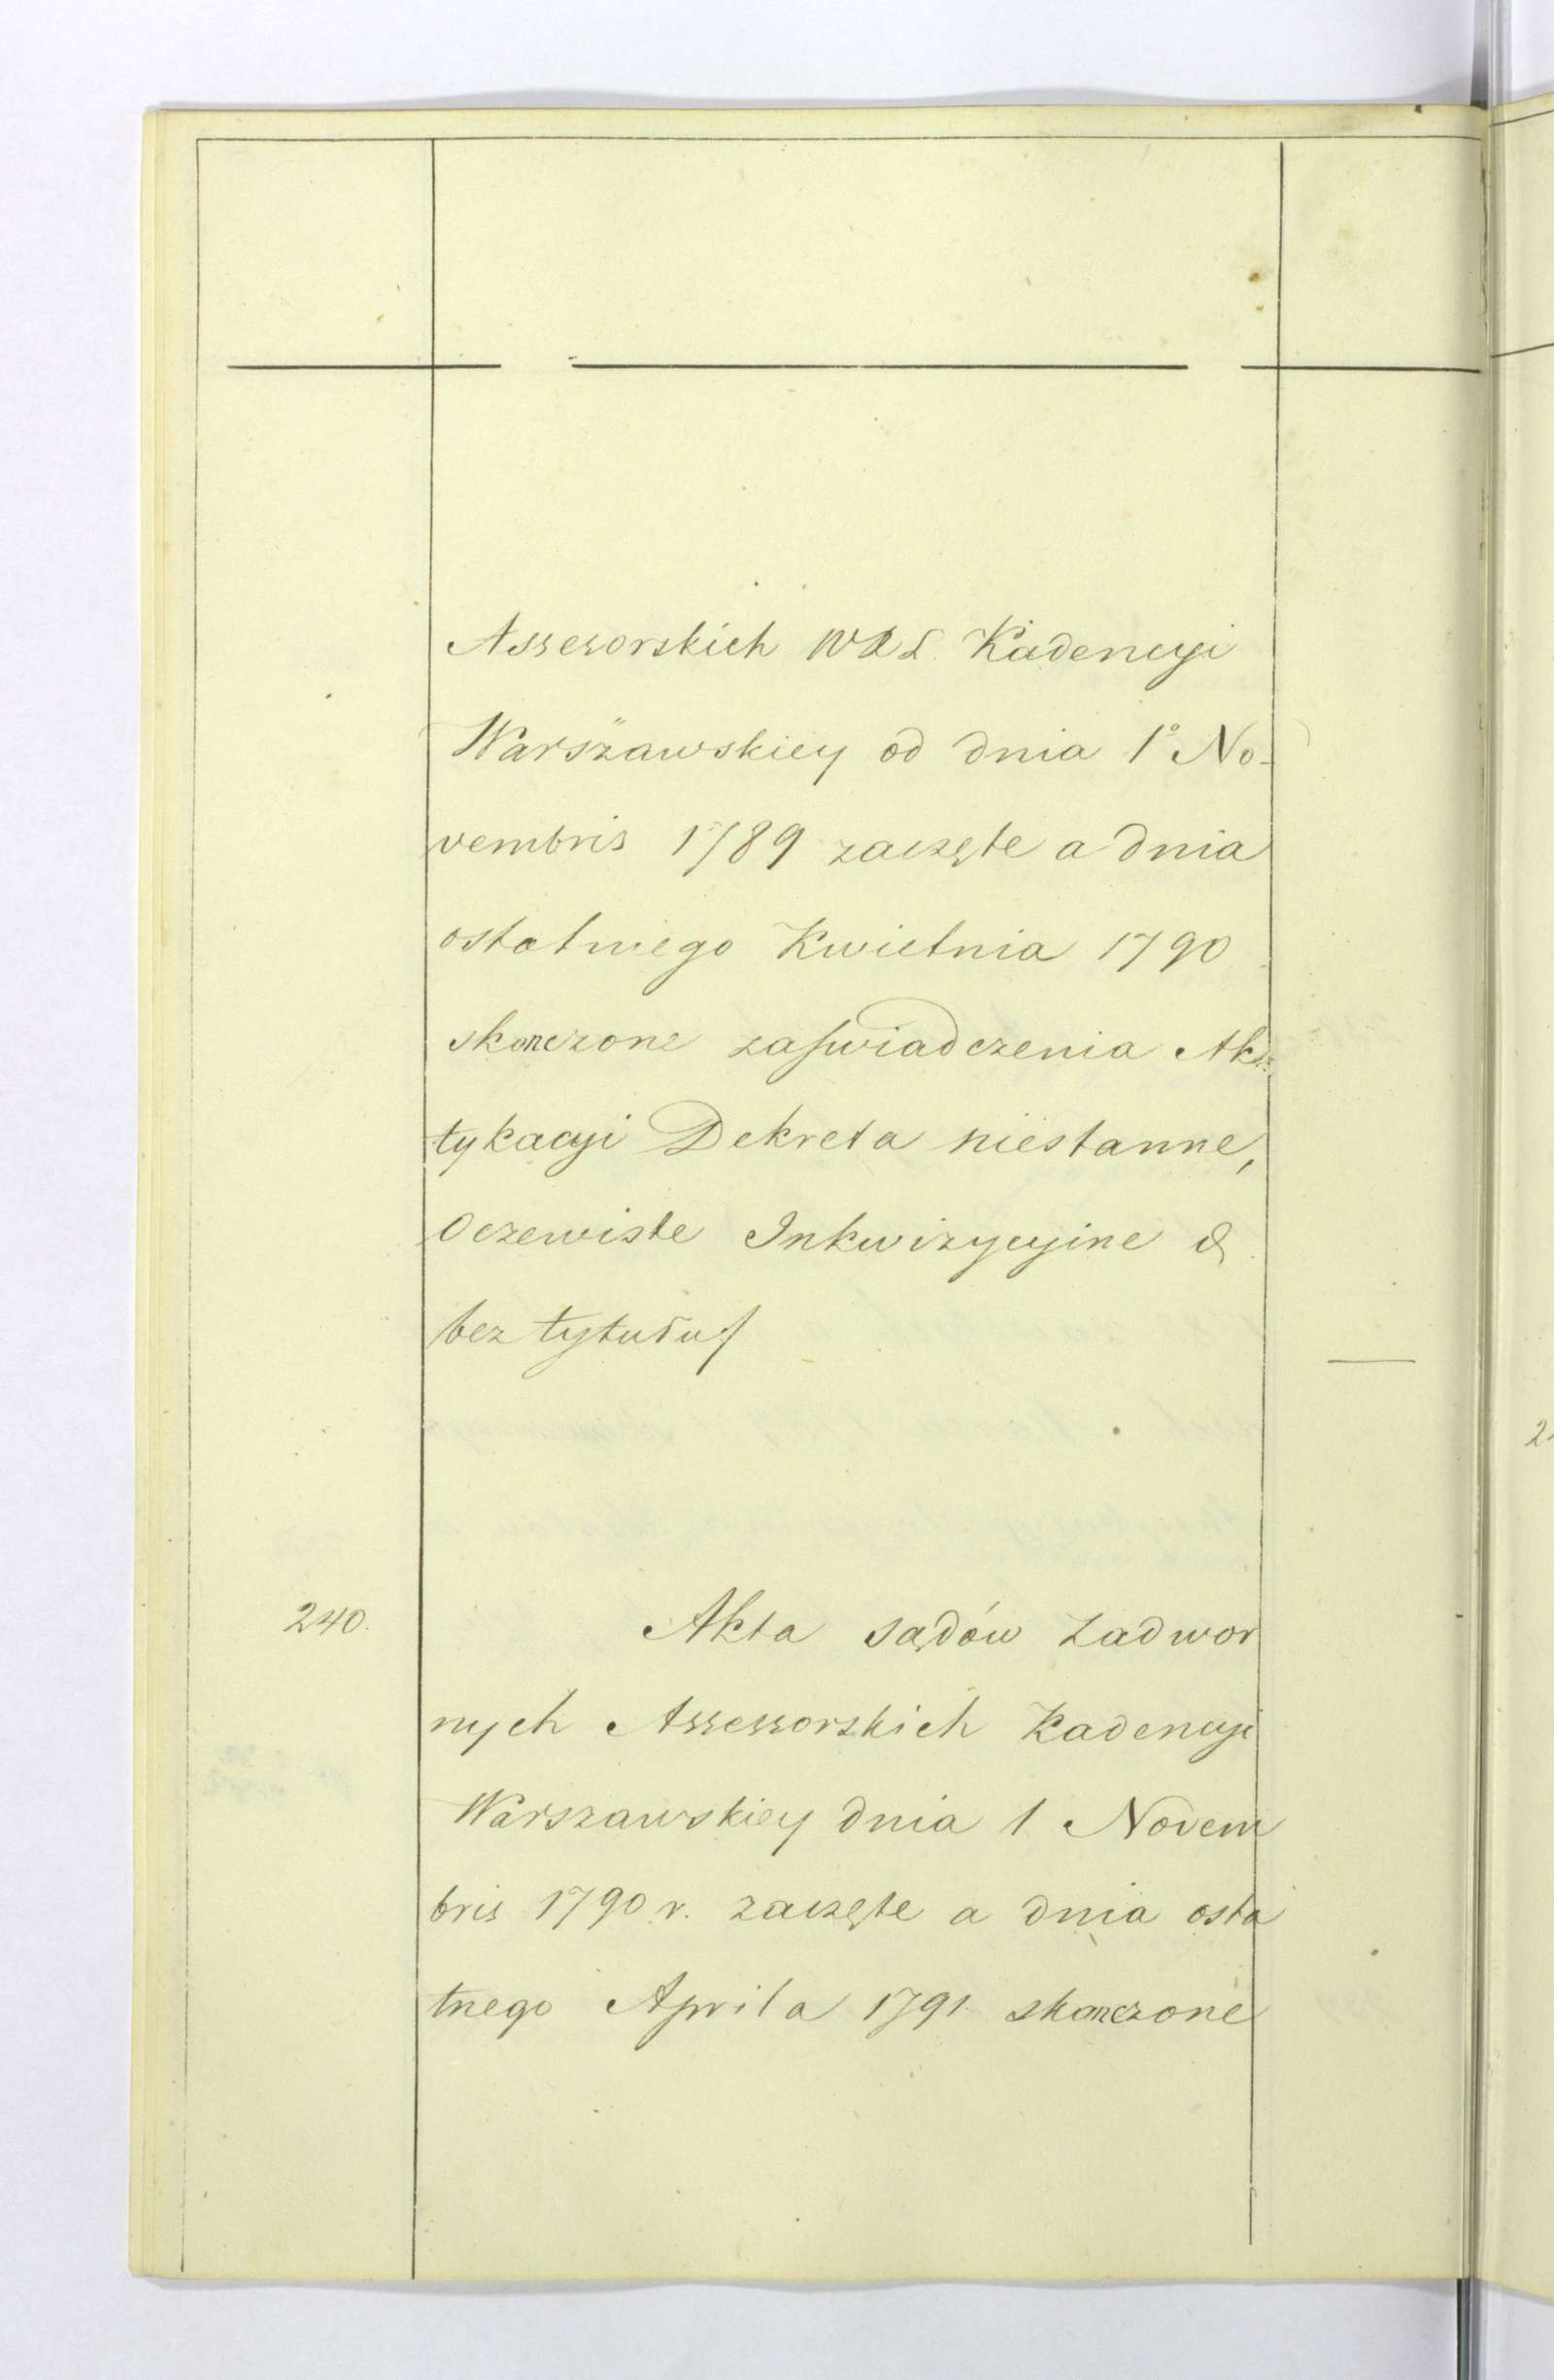 Assesorskich WXL. Kadencyi
Warszawskiey od dnia 1° No-
vembris 1789 zaczęte a dnia
ostatniego Kwietnia 1790
skonczone zaswiadczenia Ak-
tykacyi Dekreta niestanne,
Oczewiste Inkwizycyine &
bez tytułu/
240. Akta sądów Zadwor
nych Assessorskich Kadencyi
Warszawskiey dnia 1 Novem
bris 1790 r. zaczęte a dnia osta
tnego Aprila 1791. skonczone